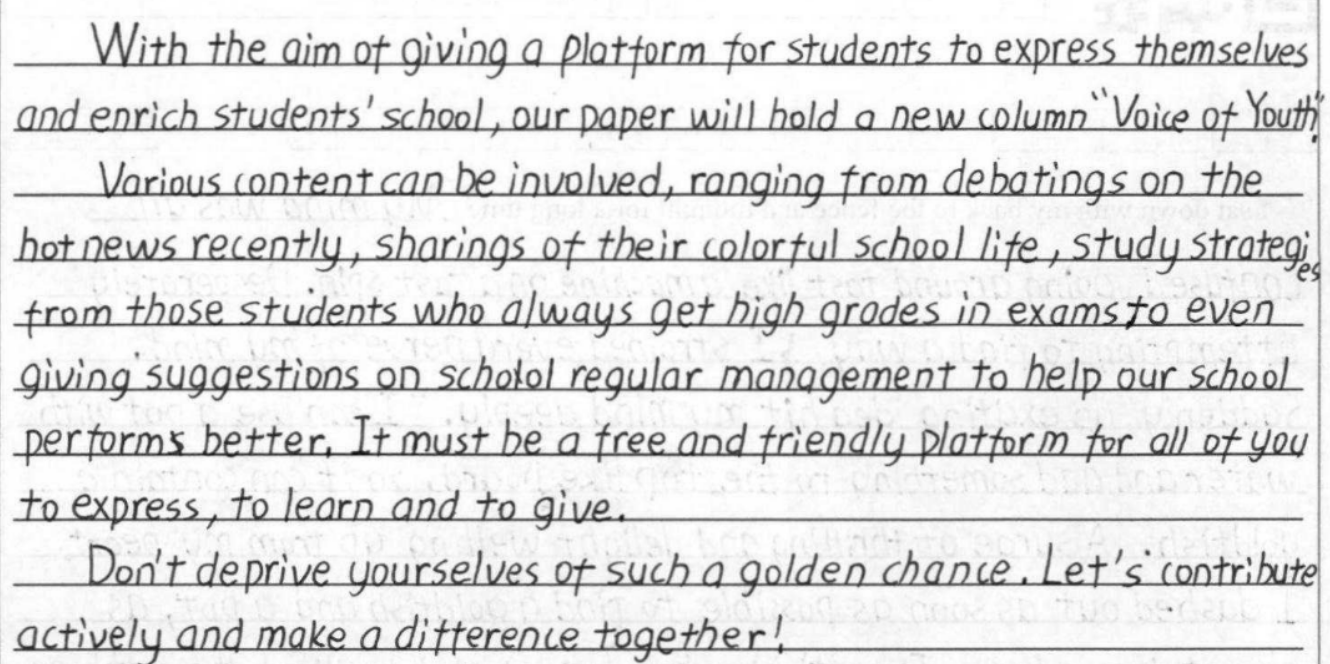 With the aim of giving a platform for students to express themselves
and enrich students' school, our paper will hold a new column "Voice of Youth".
Various content can be involved, ranging from debatings on the
hot news recently, sharings of their colorful school life, study strategies
from those students who always get high grades in exams to even
giving suggestions on school regular management to help our school
performs better. It must be a free and friendly platform for all of you
to express, to learn and to give.
Don't deprive yourselves of such a golden chance. Let's contribute
actively and make a difference together!